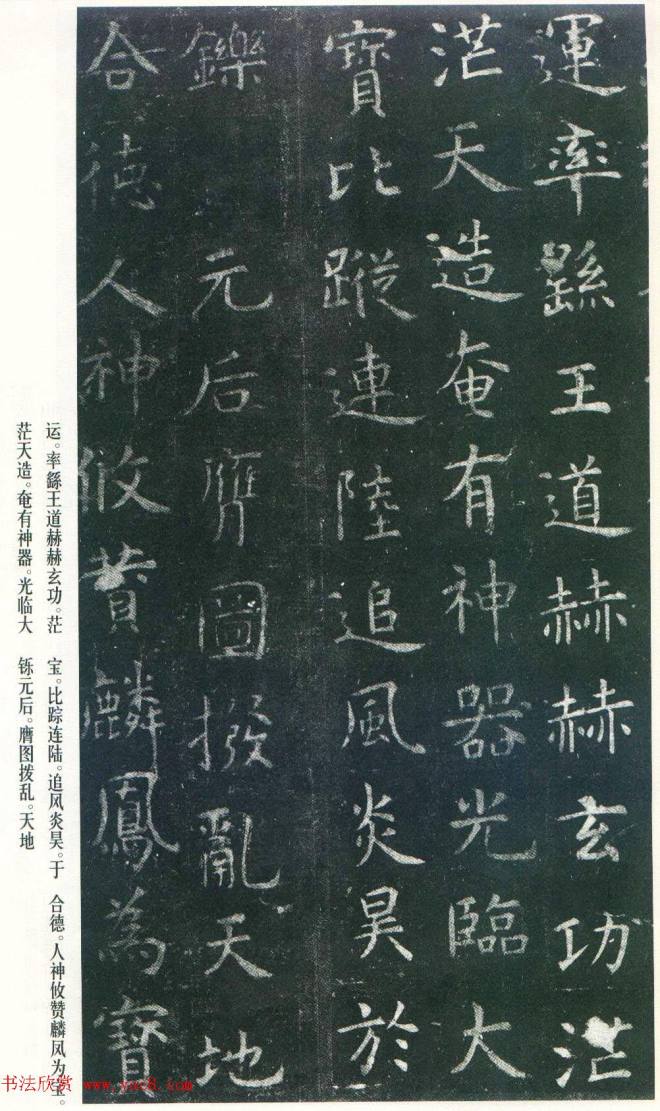 運率繇王道赫赫玄功茫
茫天造奄有神器光臨大
寶比蹤連陸追風炎昊於
鑠元后膺圖撥亂天地
合德人神攸贊麟鳳為寶
运。率繇王道赫赫玄功。茫
茫天造。奄有神器。光临大
宝。比踪连陆。追风炎昊。于
铄元后。膺图拨乱。天地
合德。人神攸赞麟凤为宝。
书法欣赏 www.yac8.com